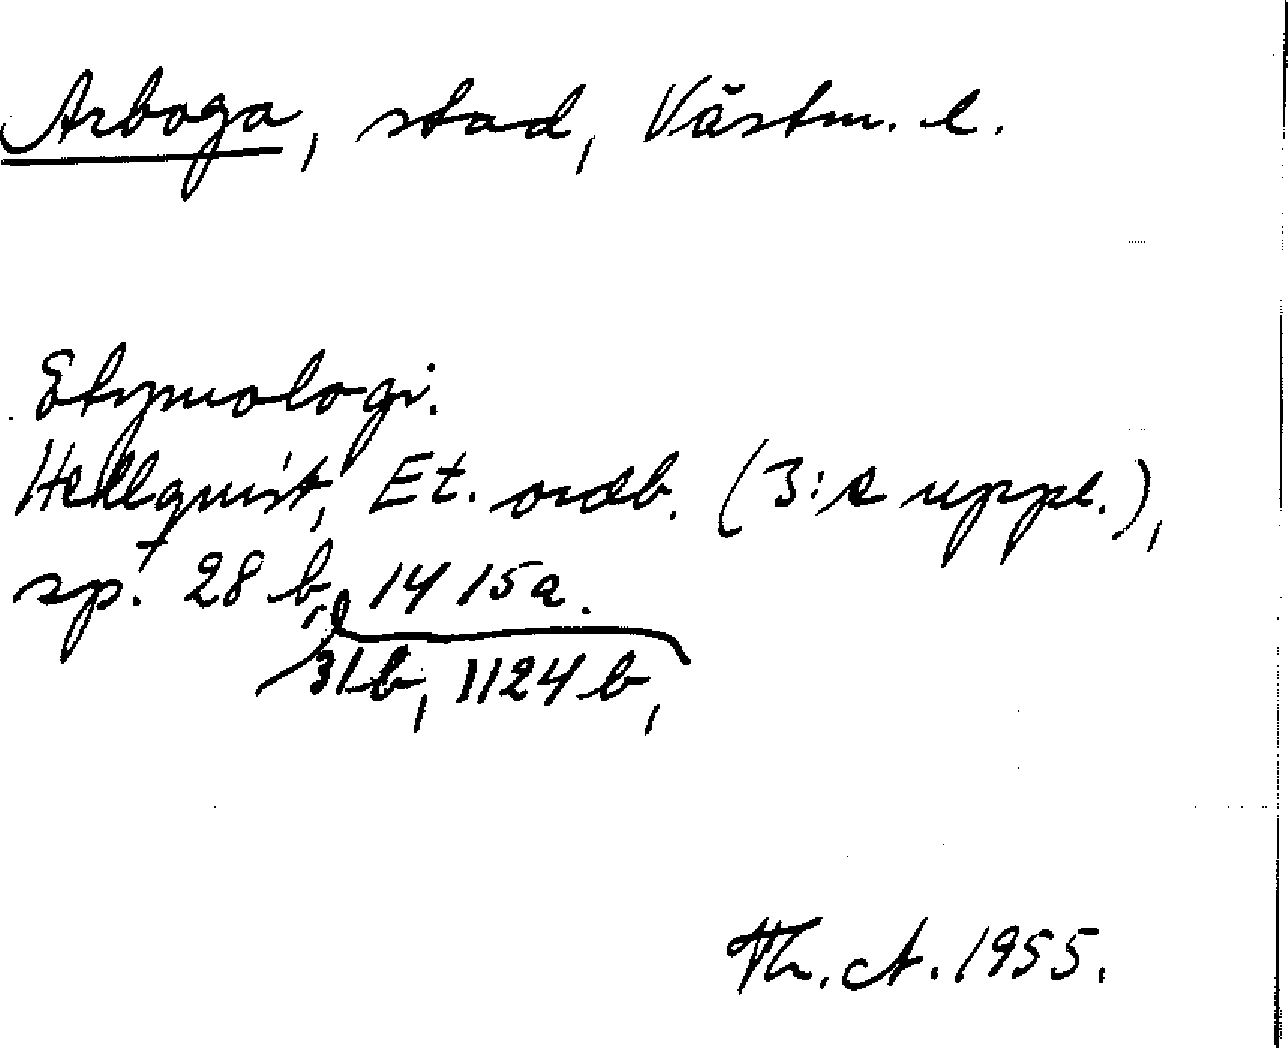 Arboga, stad, Västm. l.
Etymologi.
Hellquist, Et. ordb. (3:e uppl.),
sp. 28 b, 1415a.
31b, 1124 b,
Th. A. 1955.